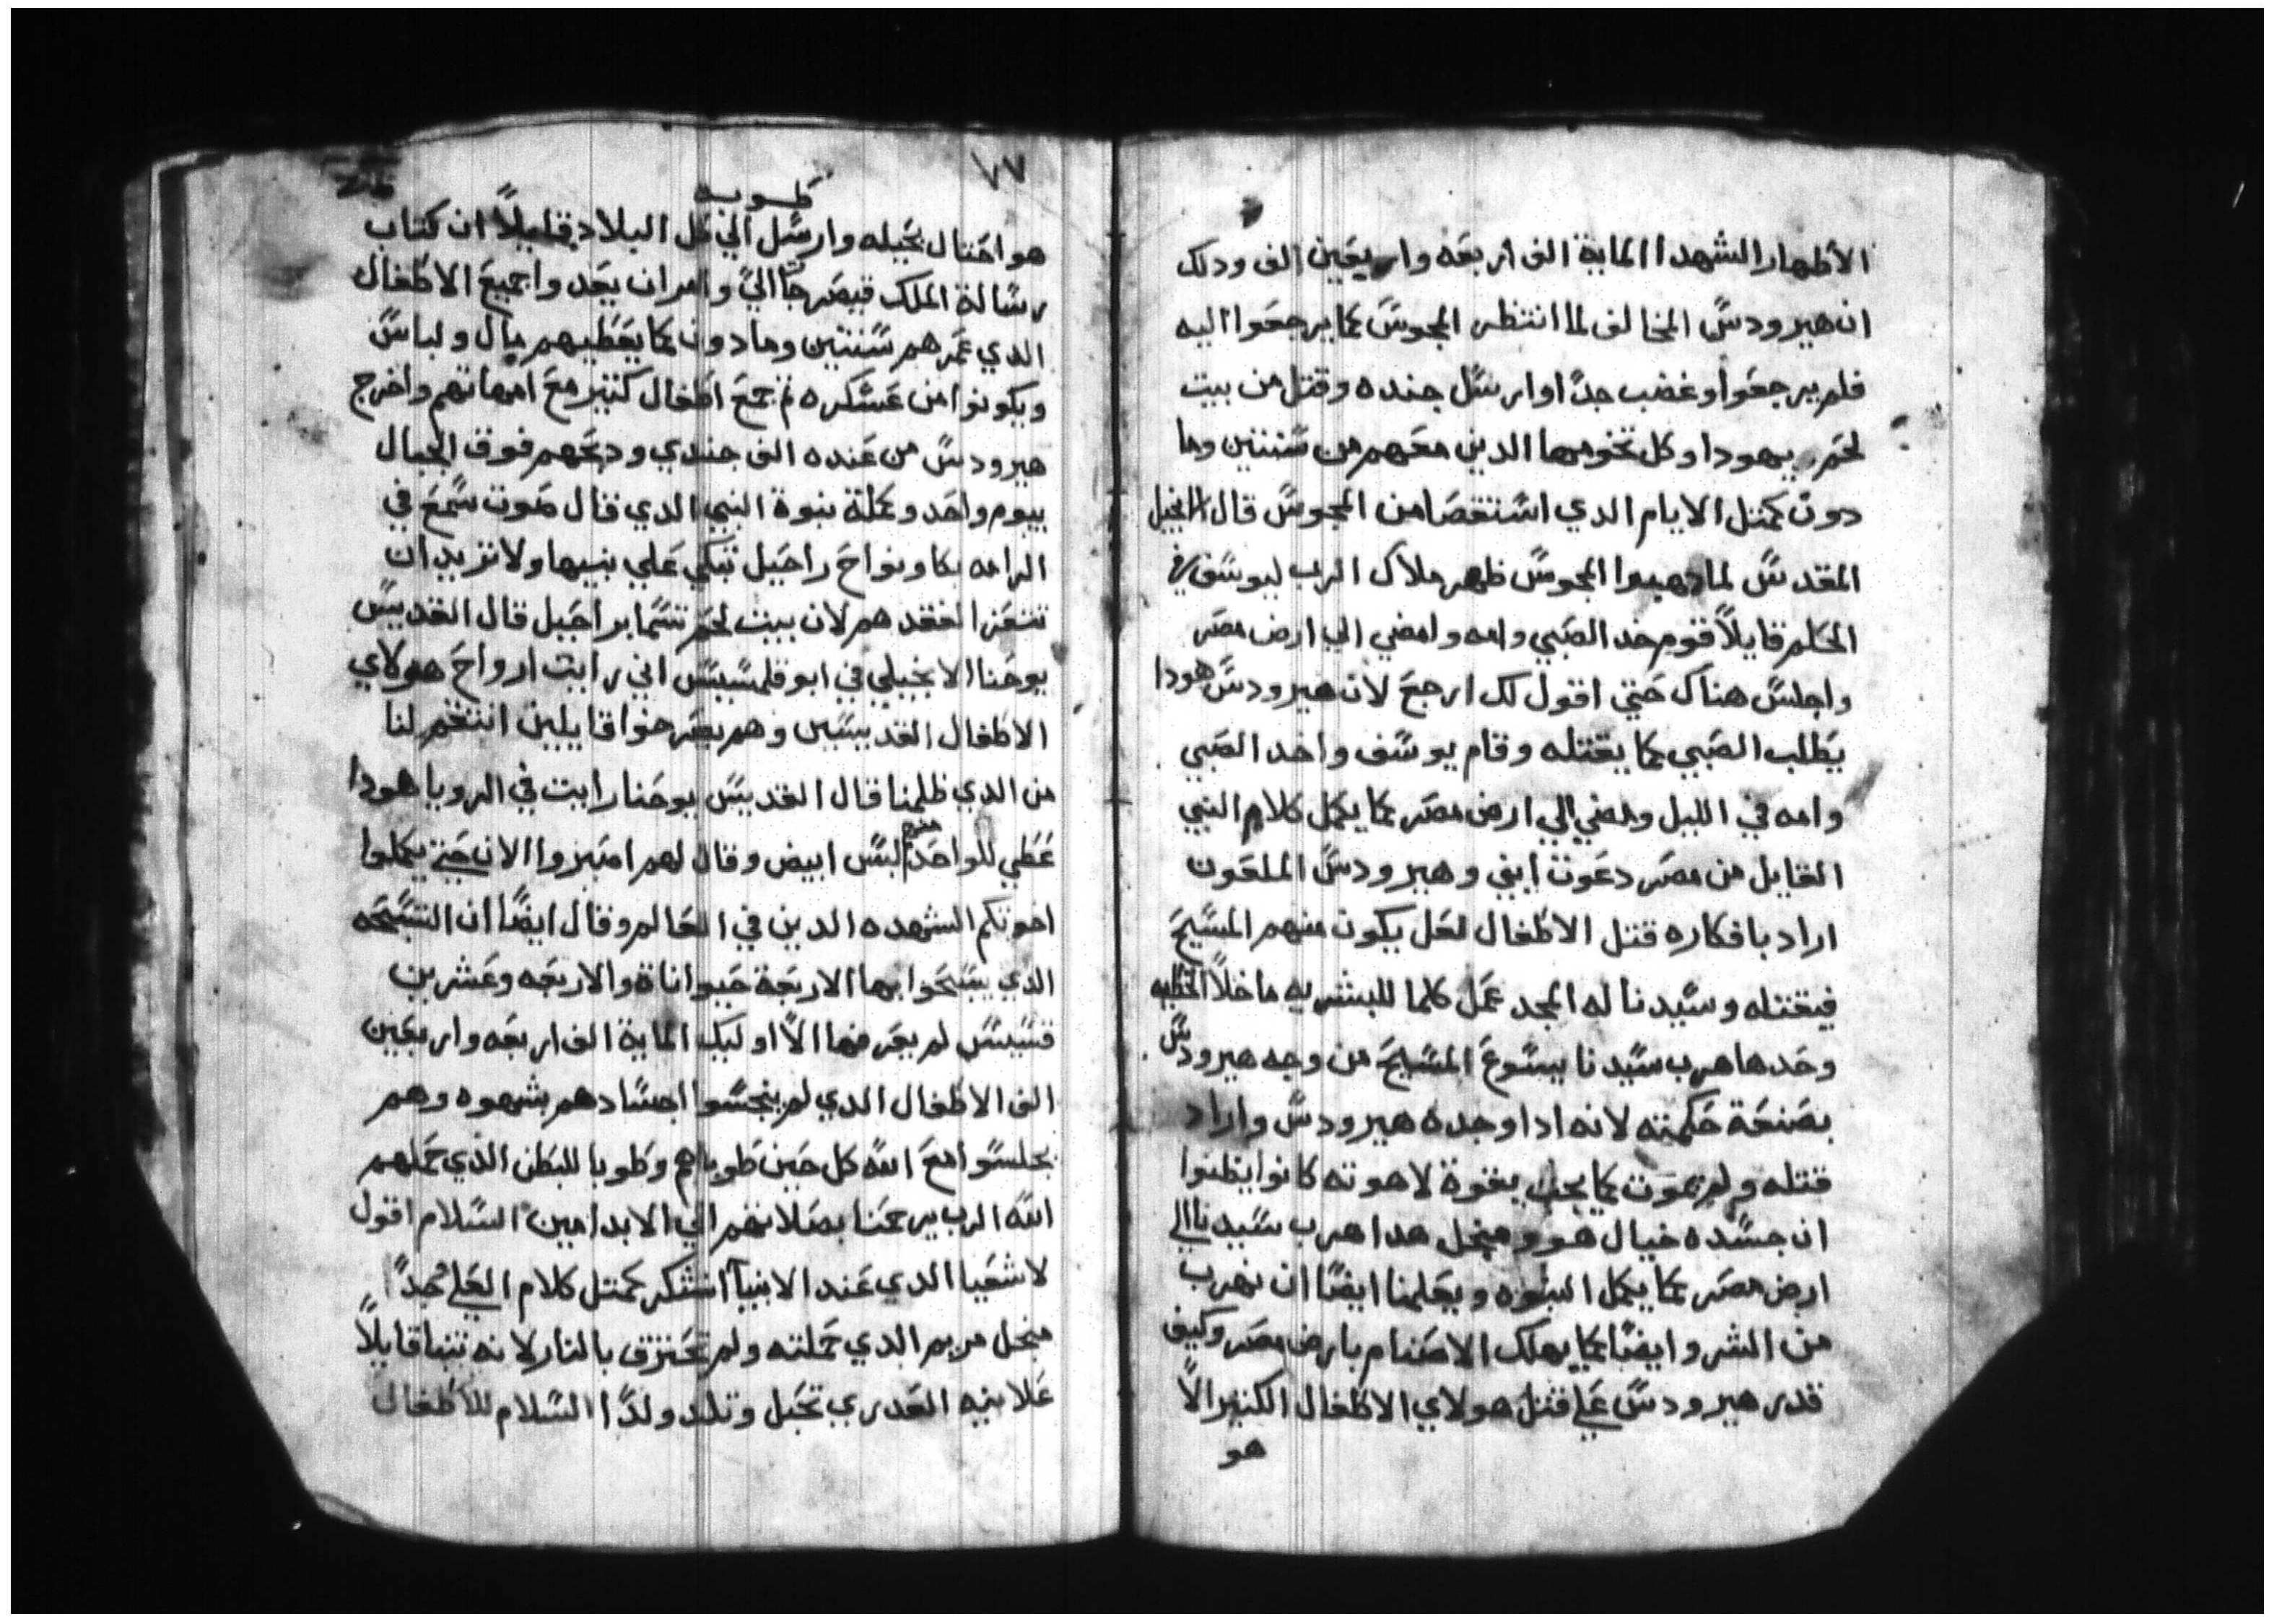 الأطهار الشهدا الماية الف اربعه واربعين الف ودلك
ان هيرودس المخالف لما انتظر المجوس كما يرجعوا اليه
فلم يرجعوا وغضب جدًا وارسل جنده وقتل من بيت
لحم يهودا وكل تخومها الدين معهم من سنتين وما
دون كمتل الايام الدي استقصا من المجوس قال الانجيل
المقدس لما دهبوا المجوس ظهر ملاك الرب ليوسف في
الحلم قايلاً قوم خد الصبي وامه وامضي الي ارض مصر
واجلس هناك حتي اقول لك ارجع لان هيرودس هودا
يطلب الصبي كما يقتله وقام يوسف واخد الصبي
وامه في الليل ومضي الي ارض مصر كما يكمل كلام النبي
القايل من مصر دعوت ابني وهيرودس الملعون
اراد بافكاره قتل الاطفال لعل يكون منهم المسيح
فيقتله وسيدنا له المجد عمل كلما للبشريه ماخلاً الخطيه
وحدها هرب سيدنا يسوع المسيح من وجه هيرودس
بصنعة حكمته لانه ادا وجده هيرودس واراد
قتله ولم يموت كما يجب بقوة لاهوته كانوا يظنوا
ان جسده خيال هو ومنجل هدا هرب سيدنا الي
ارض مصر كما يكمل النبوه ويعلمنا ايضًا ان نهرب
من الشر وايضًا كما يهلك الاصنام بارض مصر وكيف
قدر هيرودس علي قتل هولاي الاطفال الكتير الاً
هو
١٧
طوبه
هو احتال بحيله وارسل الي كل البلاد قايلاً ان كتاب
رسالة الملك قيصر جا الي وامر ان يعدوا جميع الاطفال
الدي عمرهم سنتين وما دون كما يعطيهم مال ولباس
ويكونوا من عسكره تم جمع اطفال كتير مع امهاتهم واخرج
هيرودس من عنده الف جندي ودبحهم فوق الجبال
بيوم واحد وكملة نبوة النبي الدي قال صوت سمع في
الرامه بكا ونواح راحيل تبكي علي بنيها ولا تريد ان
تتعزا لفقدهم لان بيت لحم تسما براحيل قال القديس
يوحنا الانجيلي في ابوقلمسيس اني رايت ارواح هولاي
الاطفال القديسين وهم يصرخوا قايلين انتقم لنا
من الدي ظلمنا قال القديس يوحنا رايت في الرويا هودا
عطي للواحد منهم لبس ابيض وقال لهم اصبروا الان حتي يكملوا
اخوتكم الشهده الدين في العالم وقال ايضًا ان التسبحه
الدي يسبحوا بها الاربعة حيواناة والاربعه وعشرين
قسيس لم يعرفها الاً اوليك الماية الف اربعه واربعين
الف الاطفال الدي لم ينجسوا اجسادهم بشهوه وهم
يجلسوا مع الله كل حين طوباهم وطوبا للبطن الدي حملهم
الله الرب يرحمنا بصلاتهم الي الابد امين السلام اقول
لاشعيا الدي عند الانبيا اشكر كمتل كلام العلي جدًا
منجل مريم الدي حملته ولم تحترق بالنار لانه تنبا قايلاً
علانيه العدري تحبل وتلد ولدًا السلام للاطفال